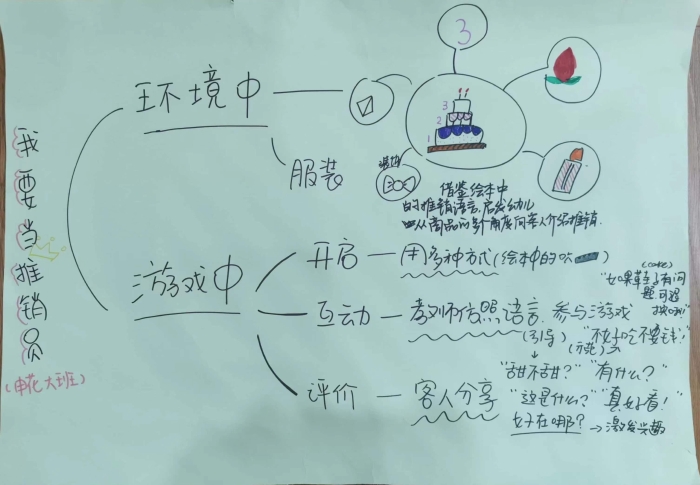 我要当推销员
(申花大班)
环境中
3
3
2
1
服装
借鉴绘本中
的推销语言,启发幼儿
从商品的多角度向客人介绍推销.
游戏中
开启 — 用多种方式(绘本中的吹
(care)
"如果草莓有问
题可退
换哦!"
互动 — 教师仿照语言.参与游戏
(引导) "不好吃不要钱!"
(示范)
"甜不甜?" "有什么?"
评价 — 客人分享 "这是什么?" "真好看!"
好在哪? → 激发兴趣